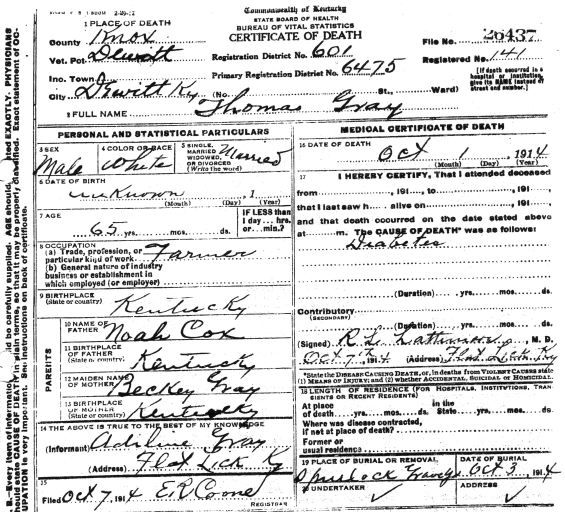 Commonwealth of Kentucky
STATE BOARD OF HEALTH
BUREAU OF VITAL STATISTICS
CERTIFICATE OF DEATH
1 PLACE OF DEATH
County Knox
File No. 26437
Vot. Pct Dewitt
Registration District No. 601
Registered No. 141
Inc. Town
Primary Registration District No. 6475
[If death occurred in a hospital or institution, give its NAME instead of street and number.]
City Dewitt Ky (No. St., Ward)
2 FULL NAME Thomas Gray
PERSONAL AND STATISTICAL PARTICULARS
3 SEX Male
4 COLOR OR RACE White
5 SINGLE, MARRIED, WIDOWED, OR DIVORCED (Write the word) Married
6 DATE OF BIRTH
unknown , 1
(Month) (Day) (Year)
7 AGE
65 yrs. mos. ds.
IF LESS than 1 day... hrs. or... min.?
8 OCCUPATION
(a) Trade, profession, or particular kind of work Farmer
(b) General nature of industry
business or establishment in
which employed (or employer)
9 BIRTHPLACE
(State or country) Kentucky
PARENTS
10 NAME OF FATHER Noah Cox
11 BIRTHPLACE OF FATHER
(State or country) Kentucky
12 MAIDEN NAME OF MOTHER Beckey Gray
13 BIRTHPLACE OF MOTHER
(State or country) Kentucky
14 THE ABOVE IS TRUE TO THE BEST OF MY KNOWLEDGE
(Informant) Adiline Gray
(Address) Flat Lick Ky
15
Filed Oct 7, 1914 E.R.
REGISTRAR
MEDICAL CERTIFICATE OF DEATH
16 DATE OF DEATH
Oct 1 1914
(Month) (Day) (Year)
17 I HEREBY CERTIFY, That I attended deceased
from , 191 , to , 191 ,
that I last saw h alive on , 191 ,
and that death occurred on the date stated above
at m. The CAUSE OF DEATH* was as follows:
Diabetes
(Duration) yrs. mos. ds.
Contributory
(SECONDARY)
(Duration) yrs. mos. ds.
(Signed) R.L. , M. D.
Oct 7th 1914 (Address) Flat Lick Ky
*State the DISEASE CAUSING DEATH, or, in deaths from VIOLENT CAUSES state
(1) MEANS OF INJURY; and (2) whether ACCIDENTAL, SUICIDAL or HOMICIDAL.
18 LENGTH OF RESIDENCE (FOR HOSPITALS, INSTITUTIONS, TRANSIENTS OR RECENT RESIDENTS)
At place of death yrs. mos. ds. In the State yrs. mos. ds.
Where was disease contracted,
if not at place of death?
Former or
usual residence
19 PLACE OF BURIAL OR REMOVAL
DATE OF BURIAL
Oct 3, 1914
20 UNDERTAKER
ADDRESS